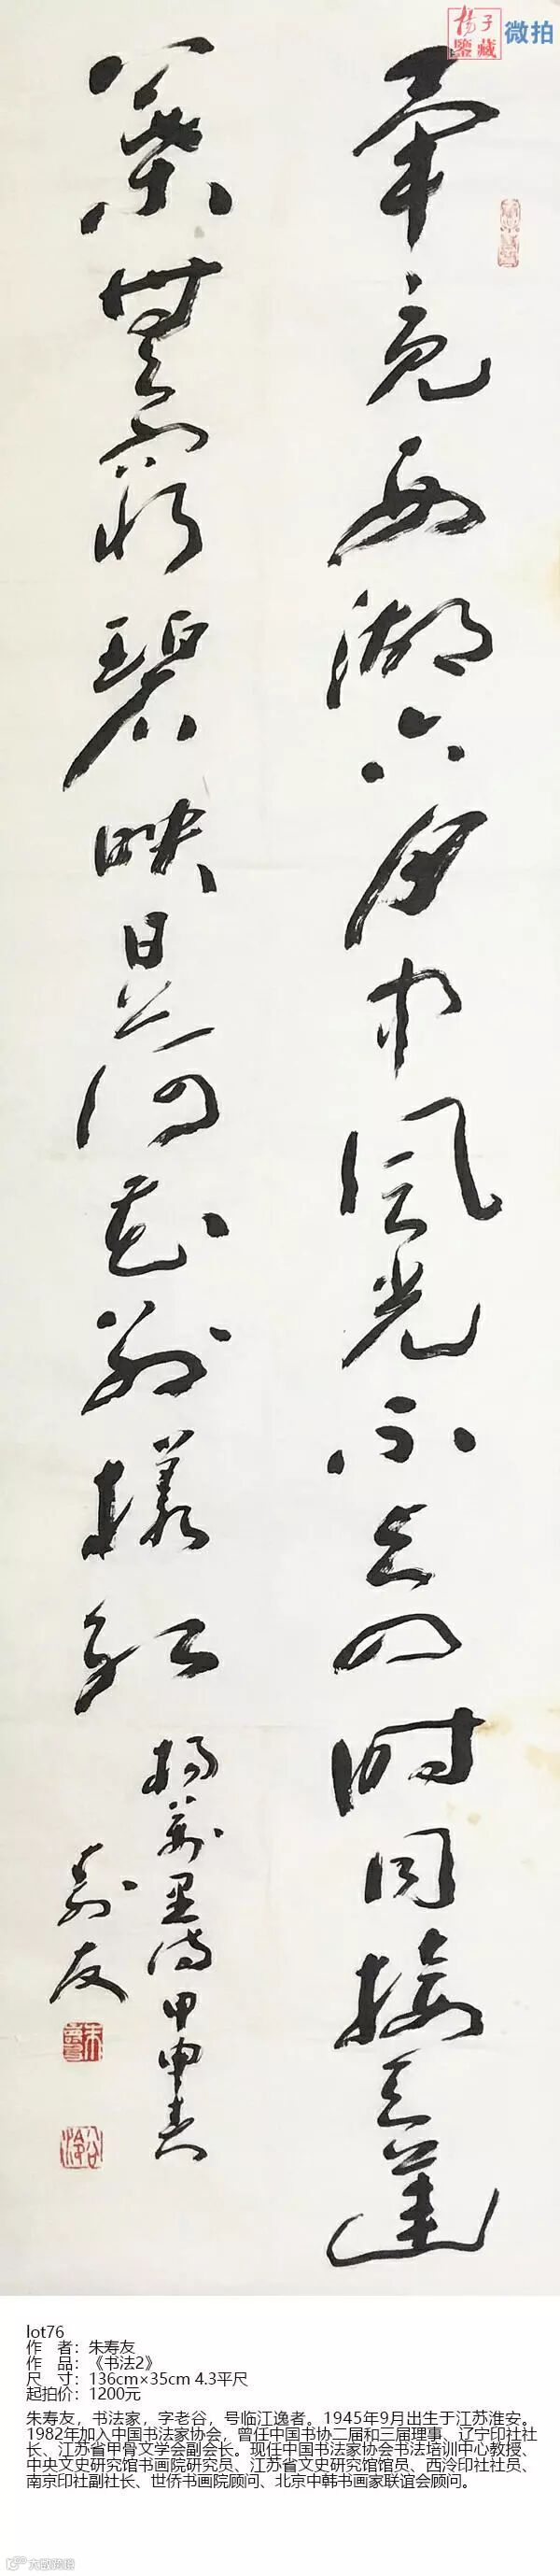 揚子
鑒藏
微拍
畢竟西湖六月中風光不与四時同接天蓮
葉無窮碧映日荷花別樣紅
楊萬里詩甲申春
壽友
lot76
作 者：朱寿友
作 品：《书法2》
尺 寸：136cm×35cm 4.3平尺
起拍价：1200元
朱寿友，书法家，字老谷，号临江逸者。1945年9月出生于江苏淮安。
1982年加入中国书法家协会，曾任中国书协二届和三届理事、辽宁印社社
长、江苏省甲骨文学会副会长。现任中国书法家协会书法培训中心教授、
中央文史研究馆书画院研究员、江苏省文史研究馆馆员、西泠印社社员、
南京印社副社长、世侨书画院顾问、北京中韩书画家联谊会顾问。